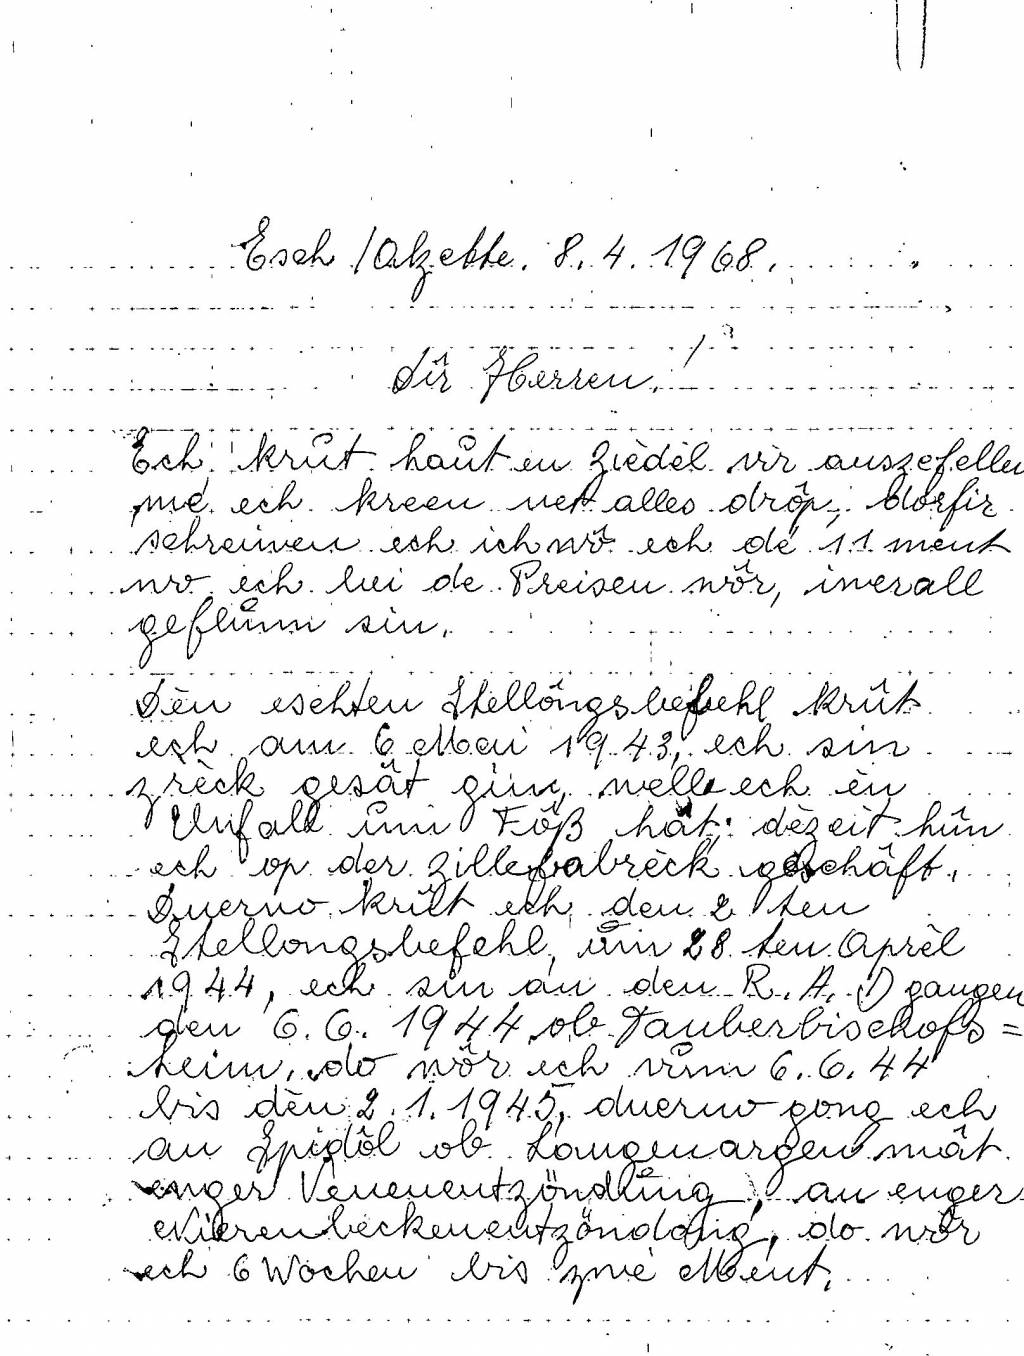 Esch /Alzette. 8. 4. 1968.
Dir Herren!
Ech krut haut en Ziedèl vir auszefellen
mé ech kreen net alles drôp, dorfir
schreiwen ech ich wô ech dé 11 ment
wo ech bei de Preisen wôr, iwerall
geflunn sin.
Dèn eschten Stellôngsbefehl krût
ech am 6 Mai 1943, ech sin
zrèck gesât gin, well ech èn
Unfall um Fôß hât; dèzeit hun
ech op der Zillefabrèck geschäft.
Duerno krut ech den 2 ten
Stellongsbefehl, um 28 ten Aprèl
1944, ech sin an den R. A. D gangen
den 6. 6. 1944 ob Tauberbischofs=
heim, do wôr ech vum 6. 6. 44
bis dèn 2. 1. 1945, duerno gong ech
an Spidôl ob Langenargen mât
enger Venenentzöndung, an enger
Nierenbeckenentzöndong, do wôr
ech 6 Wochen bis zwé Ment.